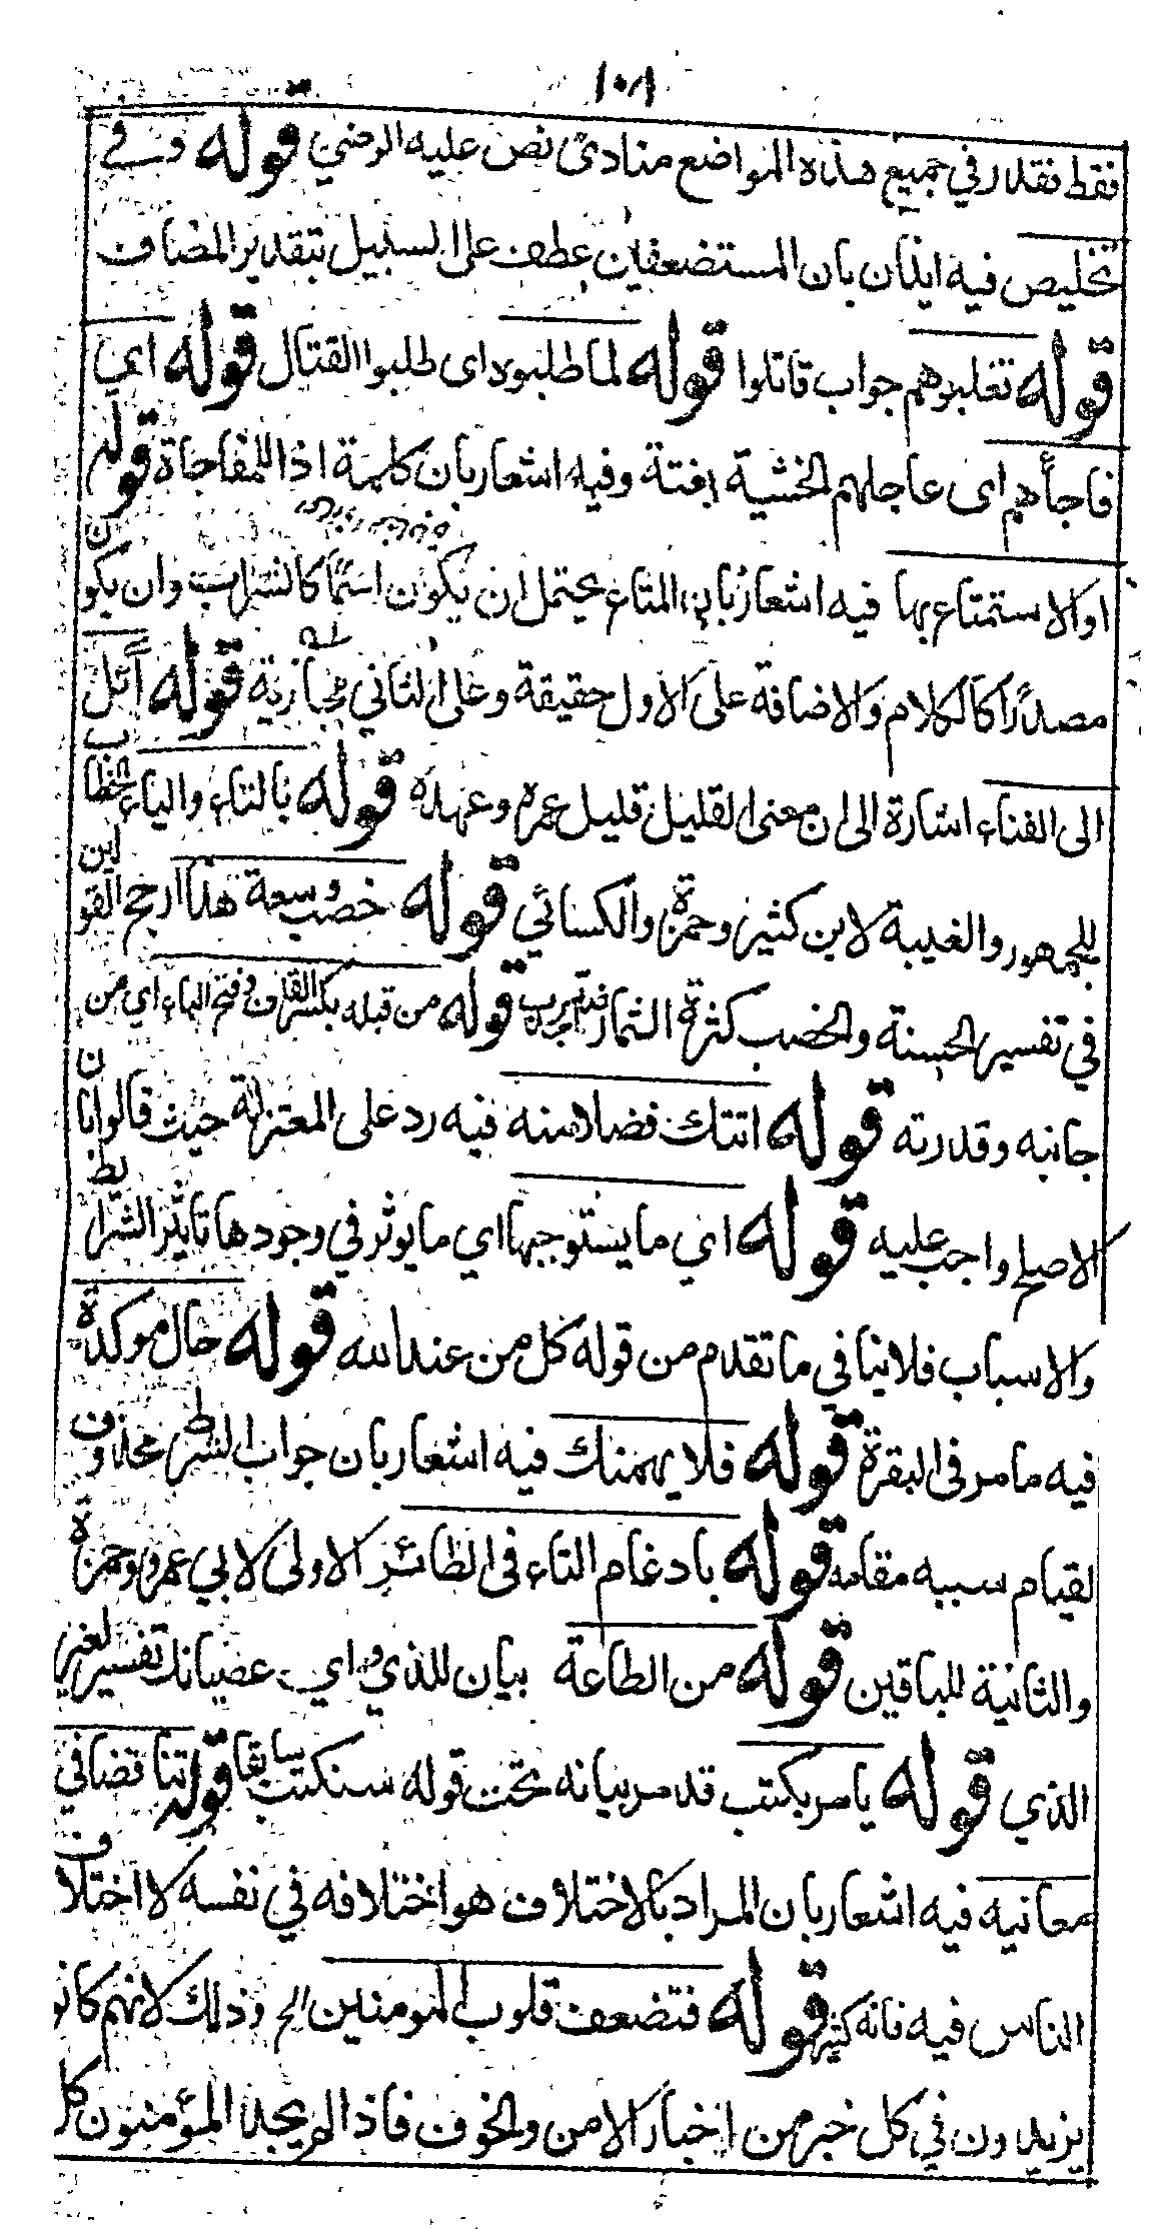 ١٠٨
فقط فقدر في جميع هذه المواضع منادى نص عليه الرضي قوله وفي
تخليص فيه ايذان بان المستضعفين عطف على السبيل بتقدير المضاف
قوله تغلبوهم جواب قاتلوا قوله لما طلبوه اى طلبوا القتال قوله اي
فاجأهم اى عاجلهم الخشية بغتة وفيه اشعار بان كلمة اذا للمفاجاة قوله
او الاستمتاع بها فيه اشعار بان المتاع يحتمل ان يكون اسمًا كالشراب وان يكون
مصدرًا كالكلام والاضافة على الاول حقيقة وعلى الثاني مجازية قوله آئل
الى الفناء اشارة الى ان معنى القليل قليل عمره وعهده قوله بالتاء والياء الخطاب
للجمهور والغيبة لابن كثير وحمزة والكسائي قوله خصب وسعة هذا ارجح القولين
في تفسير الحسنة والخصب كثرة الثمار قوله من قبله بكسر القاف وفتح الباء اي من
جانبه وقدرته قوله اتتك فضلا منه فيه رد على المعتزلة حيث قالوا بان
الاصلح واجب عليه قوله اي ما يستوجبها اي ما يوثر في وجودها تاثير الشرائط
والاسباب فلا ينافي ما تقدم من قوله كل من عند الله قوله حال موكدة
فيه ما مر فى البقرة قوله فلا يهمنك فيه اشعار بان جواب الشرط محذوف
لقيام سببه مقامه قوله بادغام التاء فى الطاء الاولى لابي عمرو وحمزة
والثانية للباقين قوله من الطاعة بيان للذي واي عصيانك تفسير لغير
الذي قوله يامر بكتب قد مر بيانه تحت قوله سنكتب سابقا قوله تناقضا في
معانيه فيه اشعار بان المراد بالاختلاف هو اختلافه في نفسه لا اختلاف
الناس فيه فانه كثير قوله فتضعف قلوب المومنين الخ وذلك لانهم كانو
يزيدون في كل خبر من اخبار الامن والخوف فاذا لم يجد المؤمنون كل